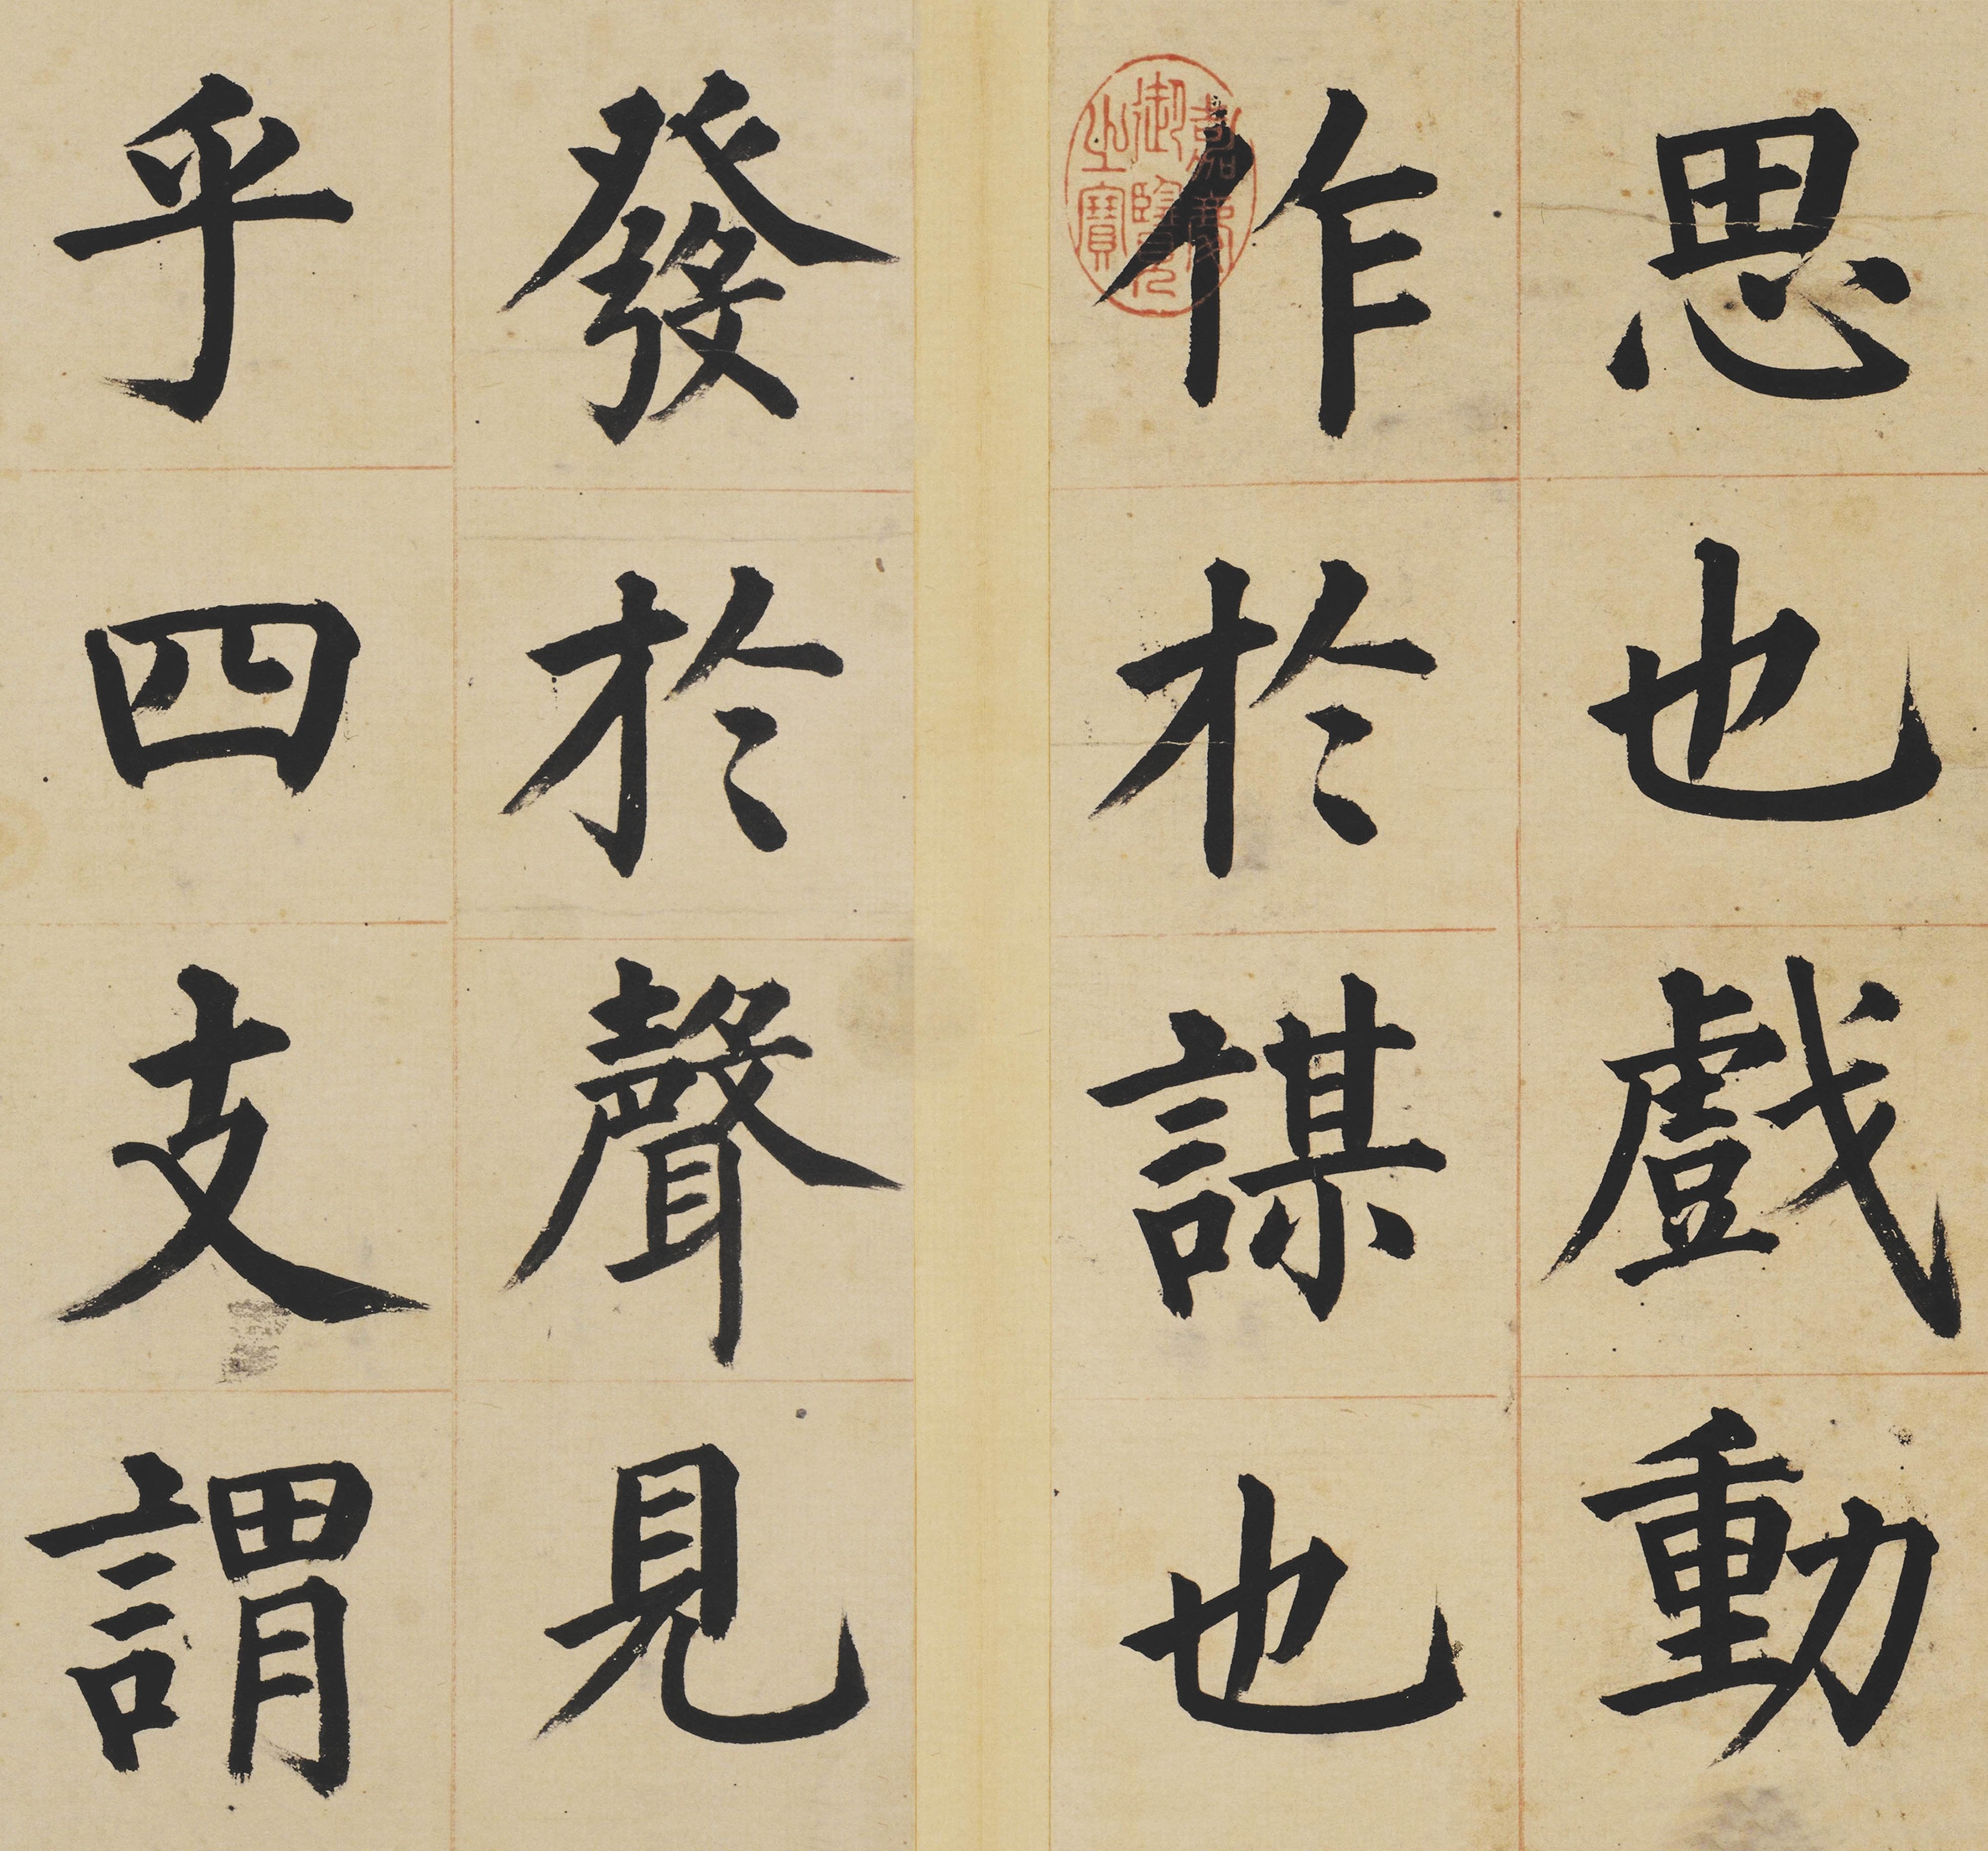 思也戲動
作於謀也
發於聲見
乎四支謂
嘉慶
御覽
之寶